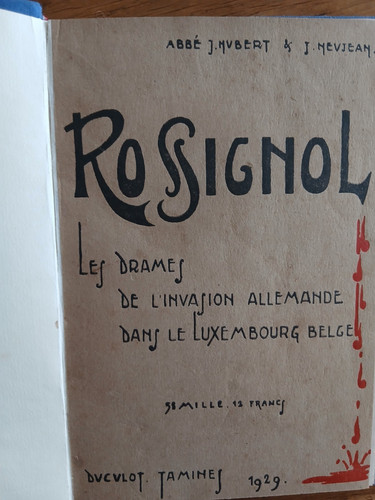 ABBÉ J. HUBERT & J. NEUJEAN.
ROSSIGNOL
LES DRAMES
DE L'INVASION ALLEMANDE
DANS LE LUXEMBOURG BELGE
58 MILLE. 12 FRANCS
DUCULOT. TAMINES 1929.